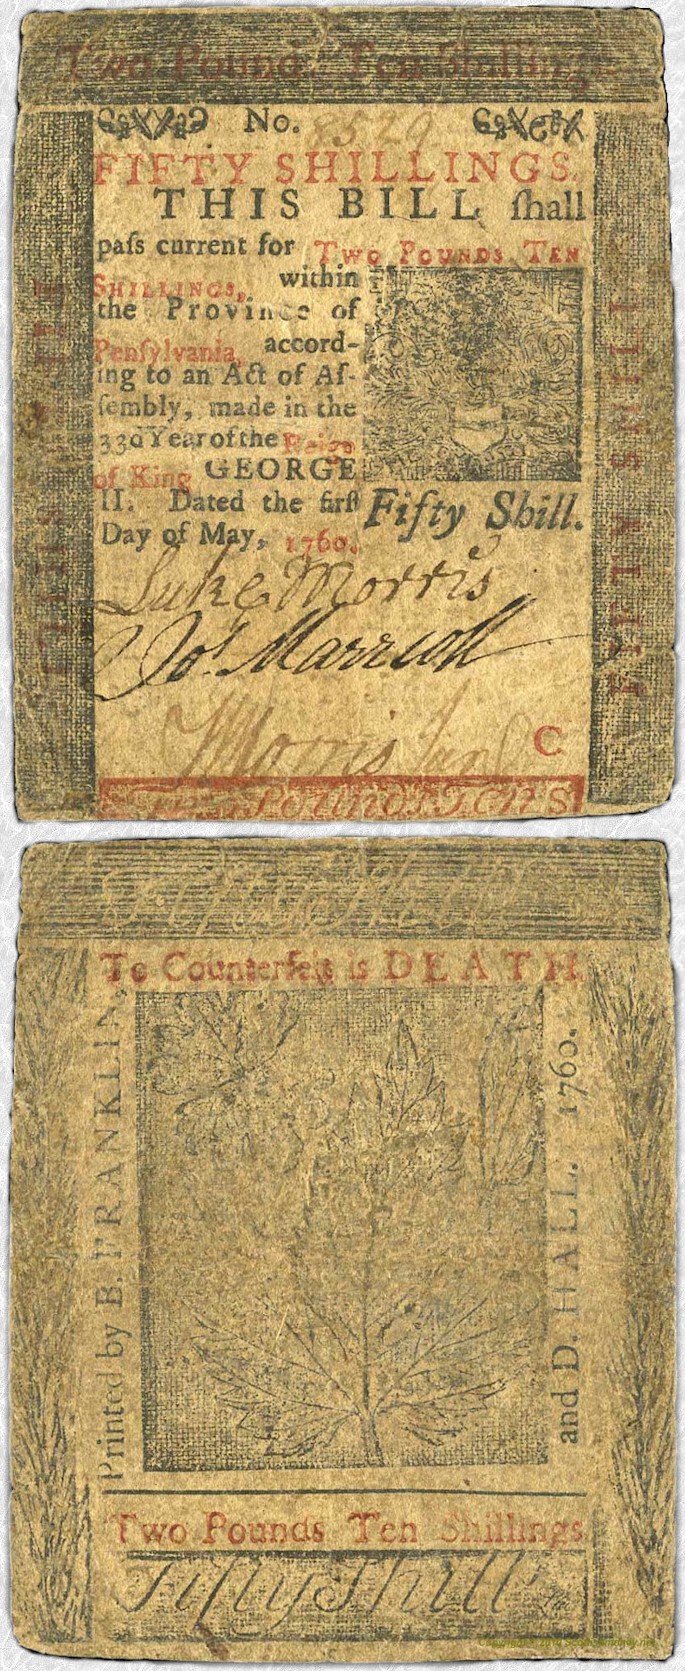 Two Pounds Ten Shillings
No. 8529
FIFTY SHILLINGS.
THIS BILL ſhall
paſs current for Two Pounds Ten
Shillings, within
the Province of
Penſylvania, accord-
ing to an Act of Aſ-
ſembly, made in the
33d Year of the Reign
of King GEORGE
II. Dated the firſt
Day of May, 1760.
Fifty Shill.
FIFTY SHILL
Luke Morris
Jos. Marriott
Morris Jun
C
Two Pounds Ten S
To Counterfeit is DEATH.
Printed by B. FRANKLIN,
and D. HALL. 1760.
Two Pounds Ten Shillings
Fifty Shill